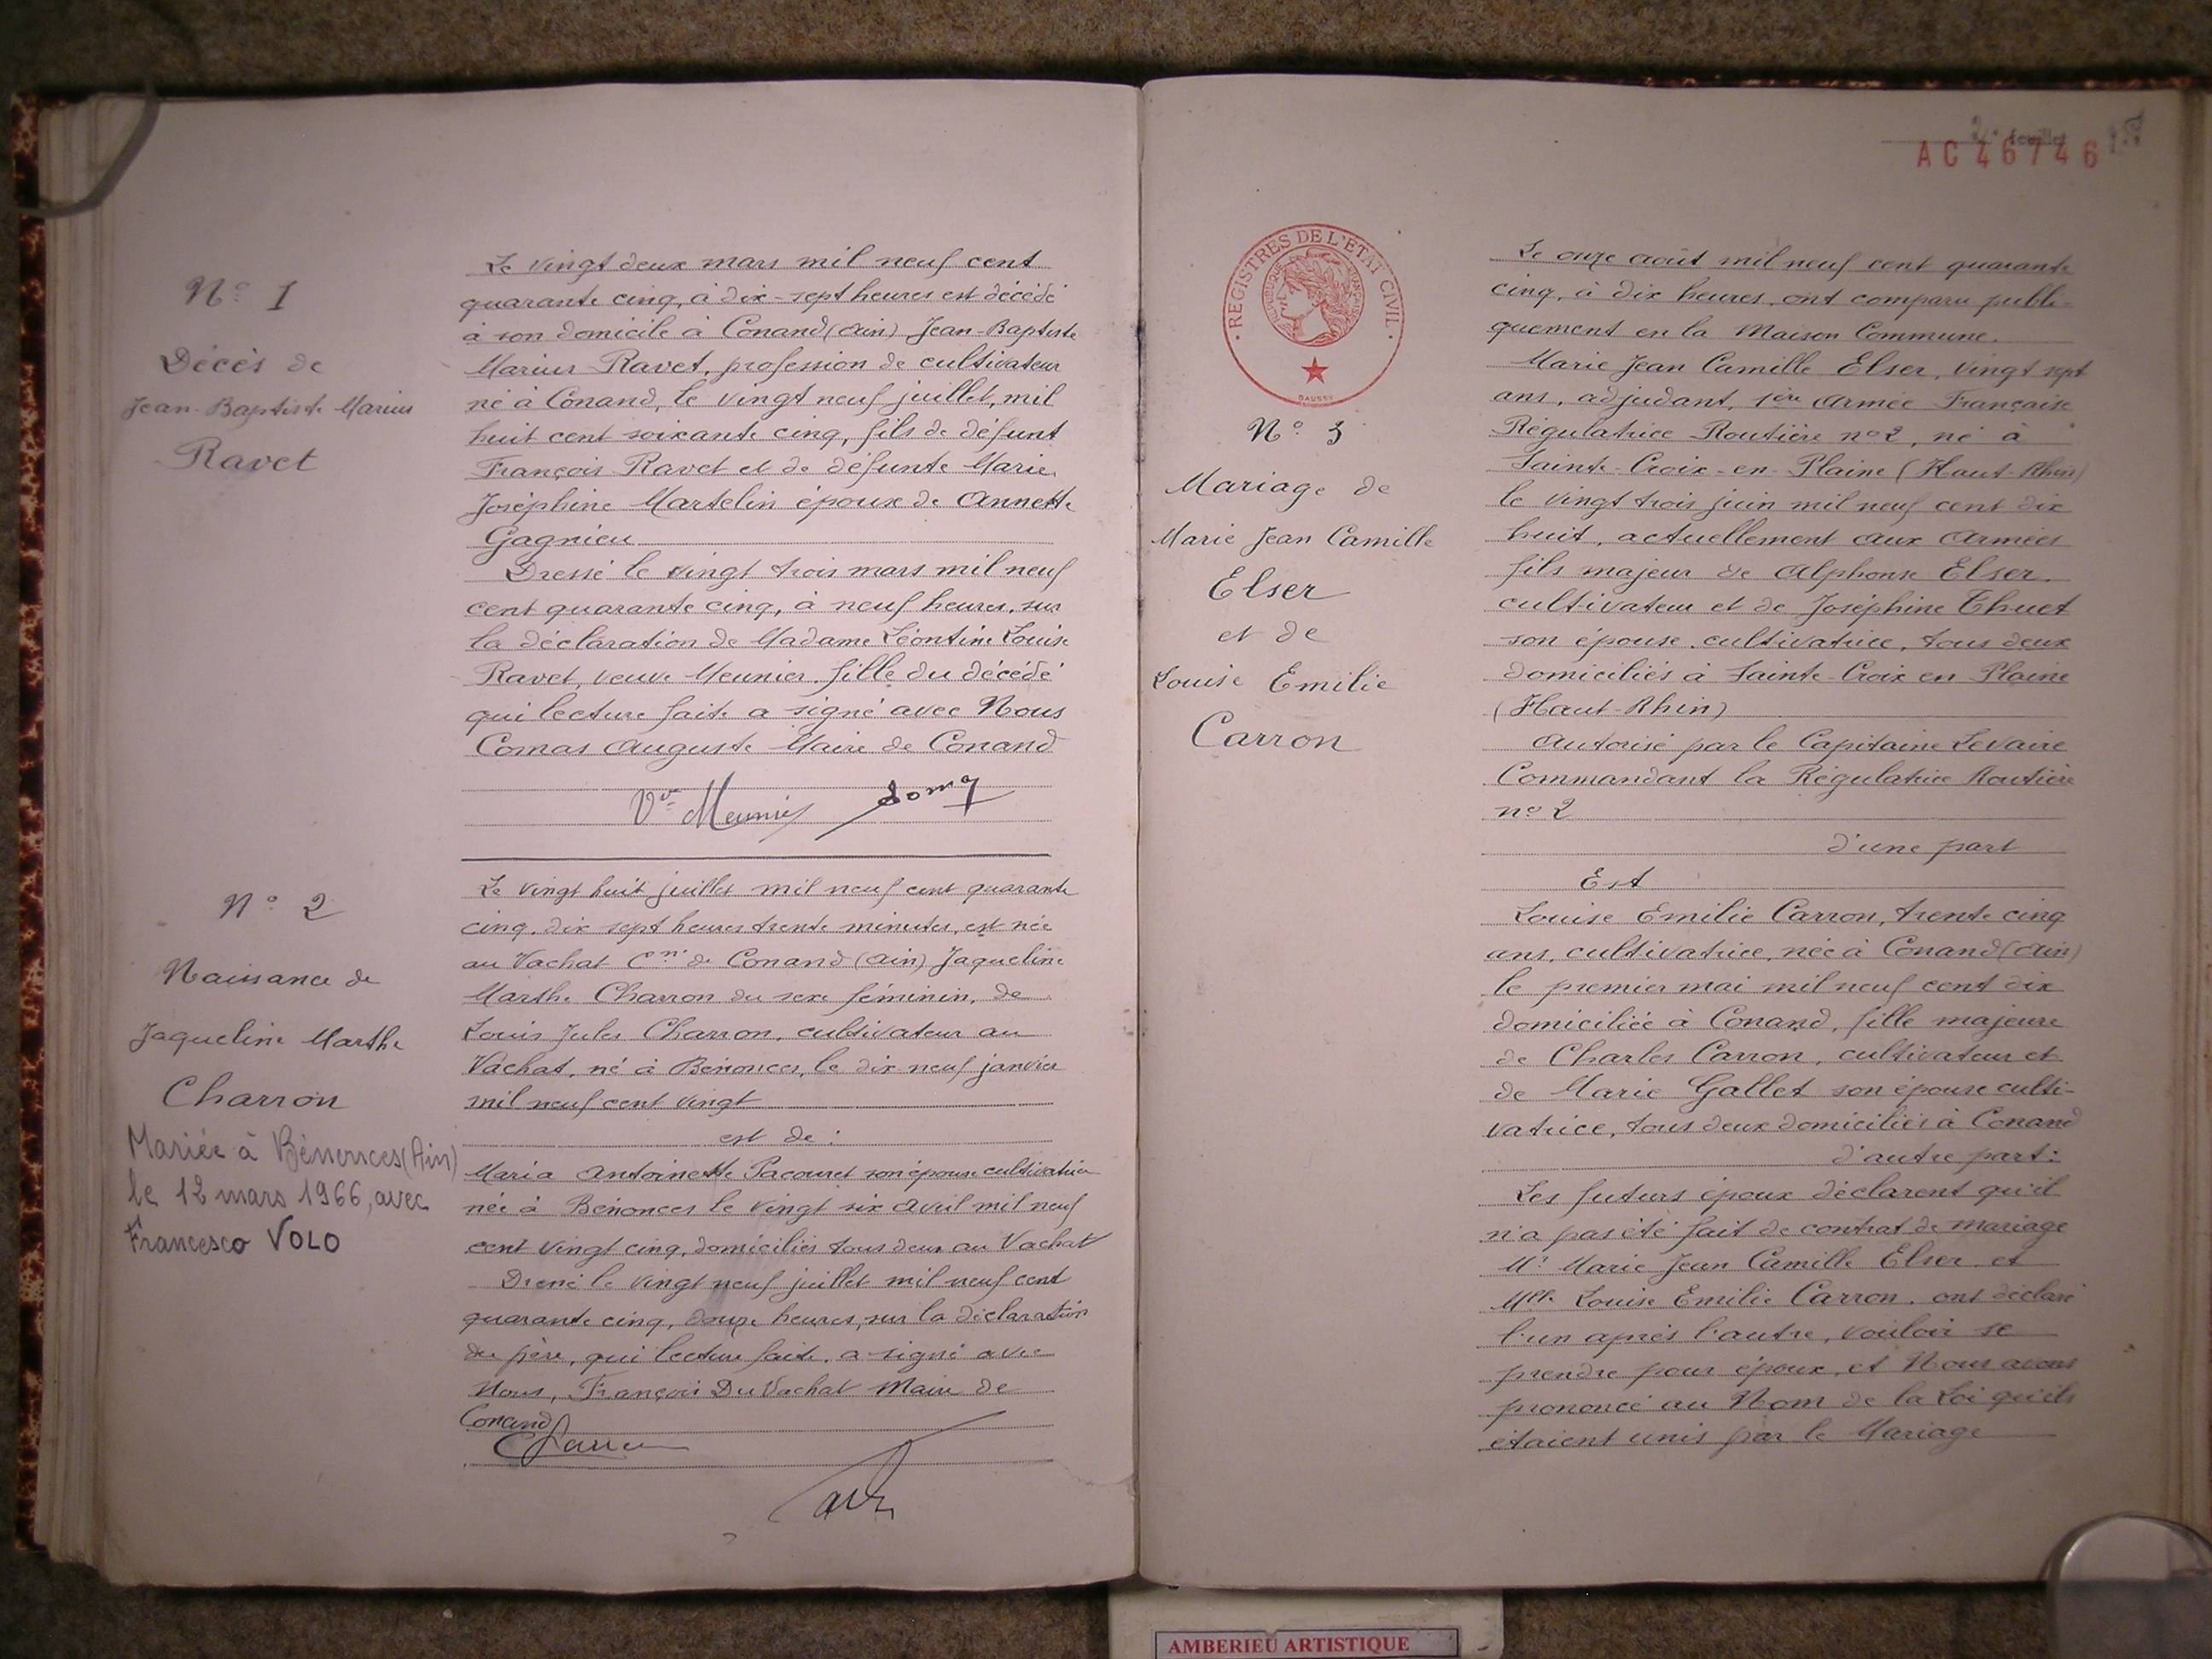 N° 1
Décès de
Jean-Baptiste Marius
Ravet
Le vingt deux mars mil neuf cent
quarante cinq, à dix-sept heures est décédé
à son domicile à Conand (Ain) Jean-Baptiste
Marius Ravet, profession de cultivateur
né à Conand, le vingt neuf juillet, mil
huit cent soixante cinq, fils de défunt
François Ravet et de défunte Marie
Joséphine Martelin époux de Annette
Gagnieu
Dressé le vingt trois mars mil neuf
cent quarante cinq, à neuf heures, sur
la déclaration de Madame Léontine Louise
Ravet, veuve Meunier, fille du décédé
qui lecture faite a signé avec Nous
Comas Auguste Maire de Conand
Vve Meunier
N° 2
Naissance de
Jaqueline Marthe
Charron
Mariée à Bénonces (Ain)
le 12 mars 1966, avec
Francesco VOLO
Le vingt huit juillet mil neuf cent quarante
cinq, dix sept heures trente minutes, est née
au Vachat Cne de Conand (Ain) Jaqueline
Marthe Charron du sexe féminin, de
Louis Jules Charron, cultivateur au
Vachat, né à Bénonces, le dix neuf janvier
mil neuf cent vingt
est de :
Maria Antoinette Pacouret son épouse cultivatrice
née à Bénonces le vingt six Avril mil neuf
cent vingt cinq, domiciliés tous deux au Vachat
Dressé le vingt neuf juillet mil neuf cent
quarante cinq, douze heures, sur la déclaration
du père, qui lecture faite, a signé avec
Nous, François Du Vachat Maire de
Conand
Charron
feuillet
AC46746
REGISTRES DE L'ETAT CIVIL
N° 3
Mariage de
Marie Jean Camille
Elser
et de
Louise Emilie
Carron
Le onze août mil neuf cent quarante
cinq, à dix heures, ont comparu publi-
quement en la Maison Commune.
Marie Jean Camille Elser, vingt sept
ans, adjudant, 1ère Armée Française
Régulatrice Routière n° 2, né à
Sainte-Croix-en-Plaine (Haut-Rhin)
le vingt trois juin mil neuf cent dix
huit, actuellement aux Armées
fils majeur de Alphonse Elser.
cultivateur et de Joséphine Thuet
son épouse, cultivatrice, tous deux
domiciliés à Sainte-Croix en Plaine
(Haut-Rhin)
Autorisé par le Capitaine Levaire
Commandant la Régulatrice Routière
n° 2
d'une part
Est
Louise Emilie Carron, trente cinq
ans, cultivatrice, née à Conand (Ain)
le premier mai mil neuf cent dix
domiciliée à Conand, fille majeure
de Charles Carron, cultivateur et
de Marie Gallet son épouse culti-
vatrice, tous deux domiciliés à Conand
d'autre part :
Les futurs époux déclarent qu'il
n'a pas été fait de contrat de mariage
Mr Marie Jean Camille Elser et
Mlle Louise Emilie Carron, ont déclaré
l'un après l'autre, vouloir se
prendre pour époux, et Nous avons
prononcé au Nom de la Loi qu'ils
étaient unis par le Mariage
AMBERIEU ARTISTIQUE